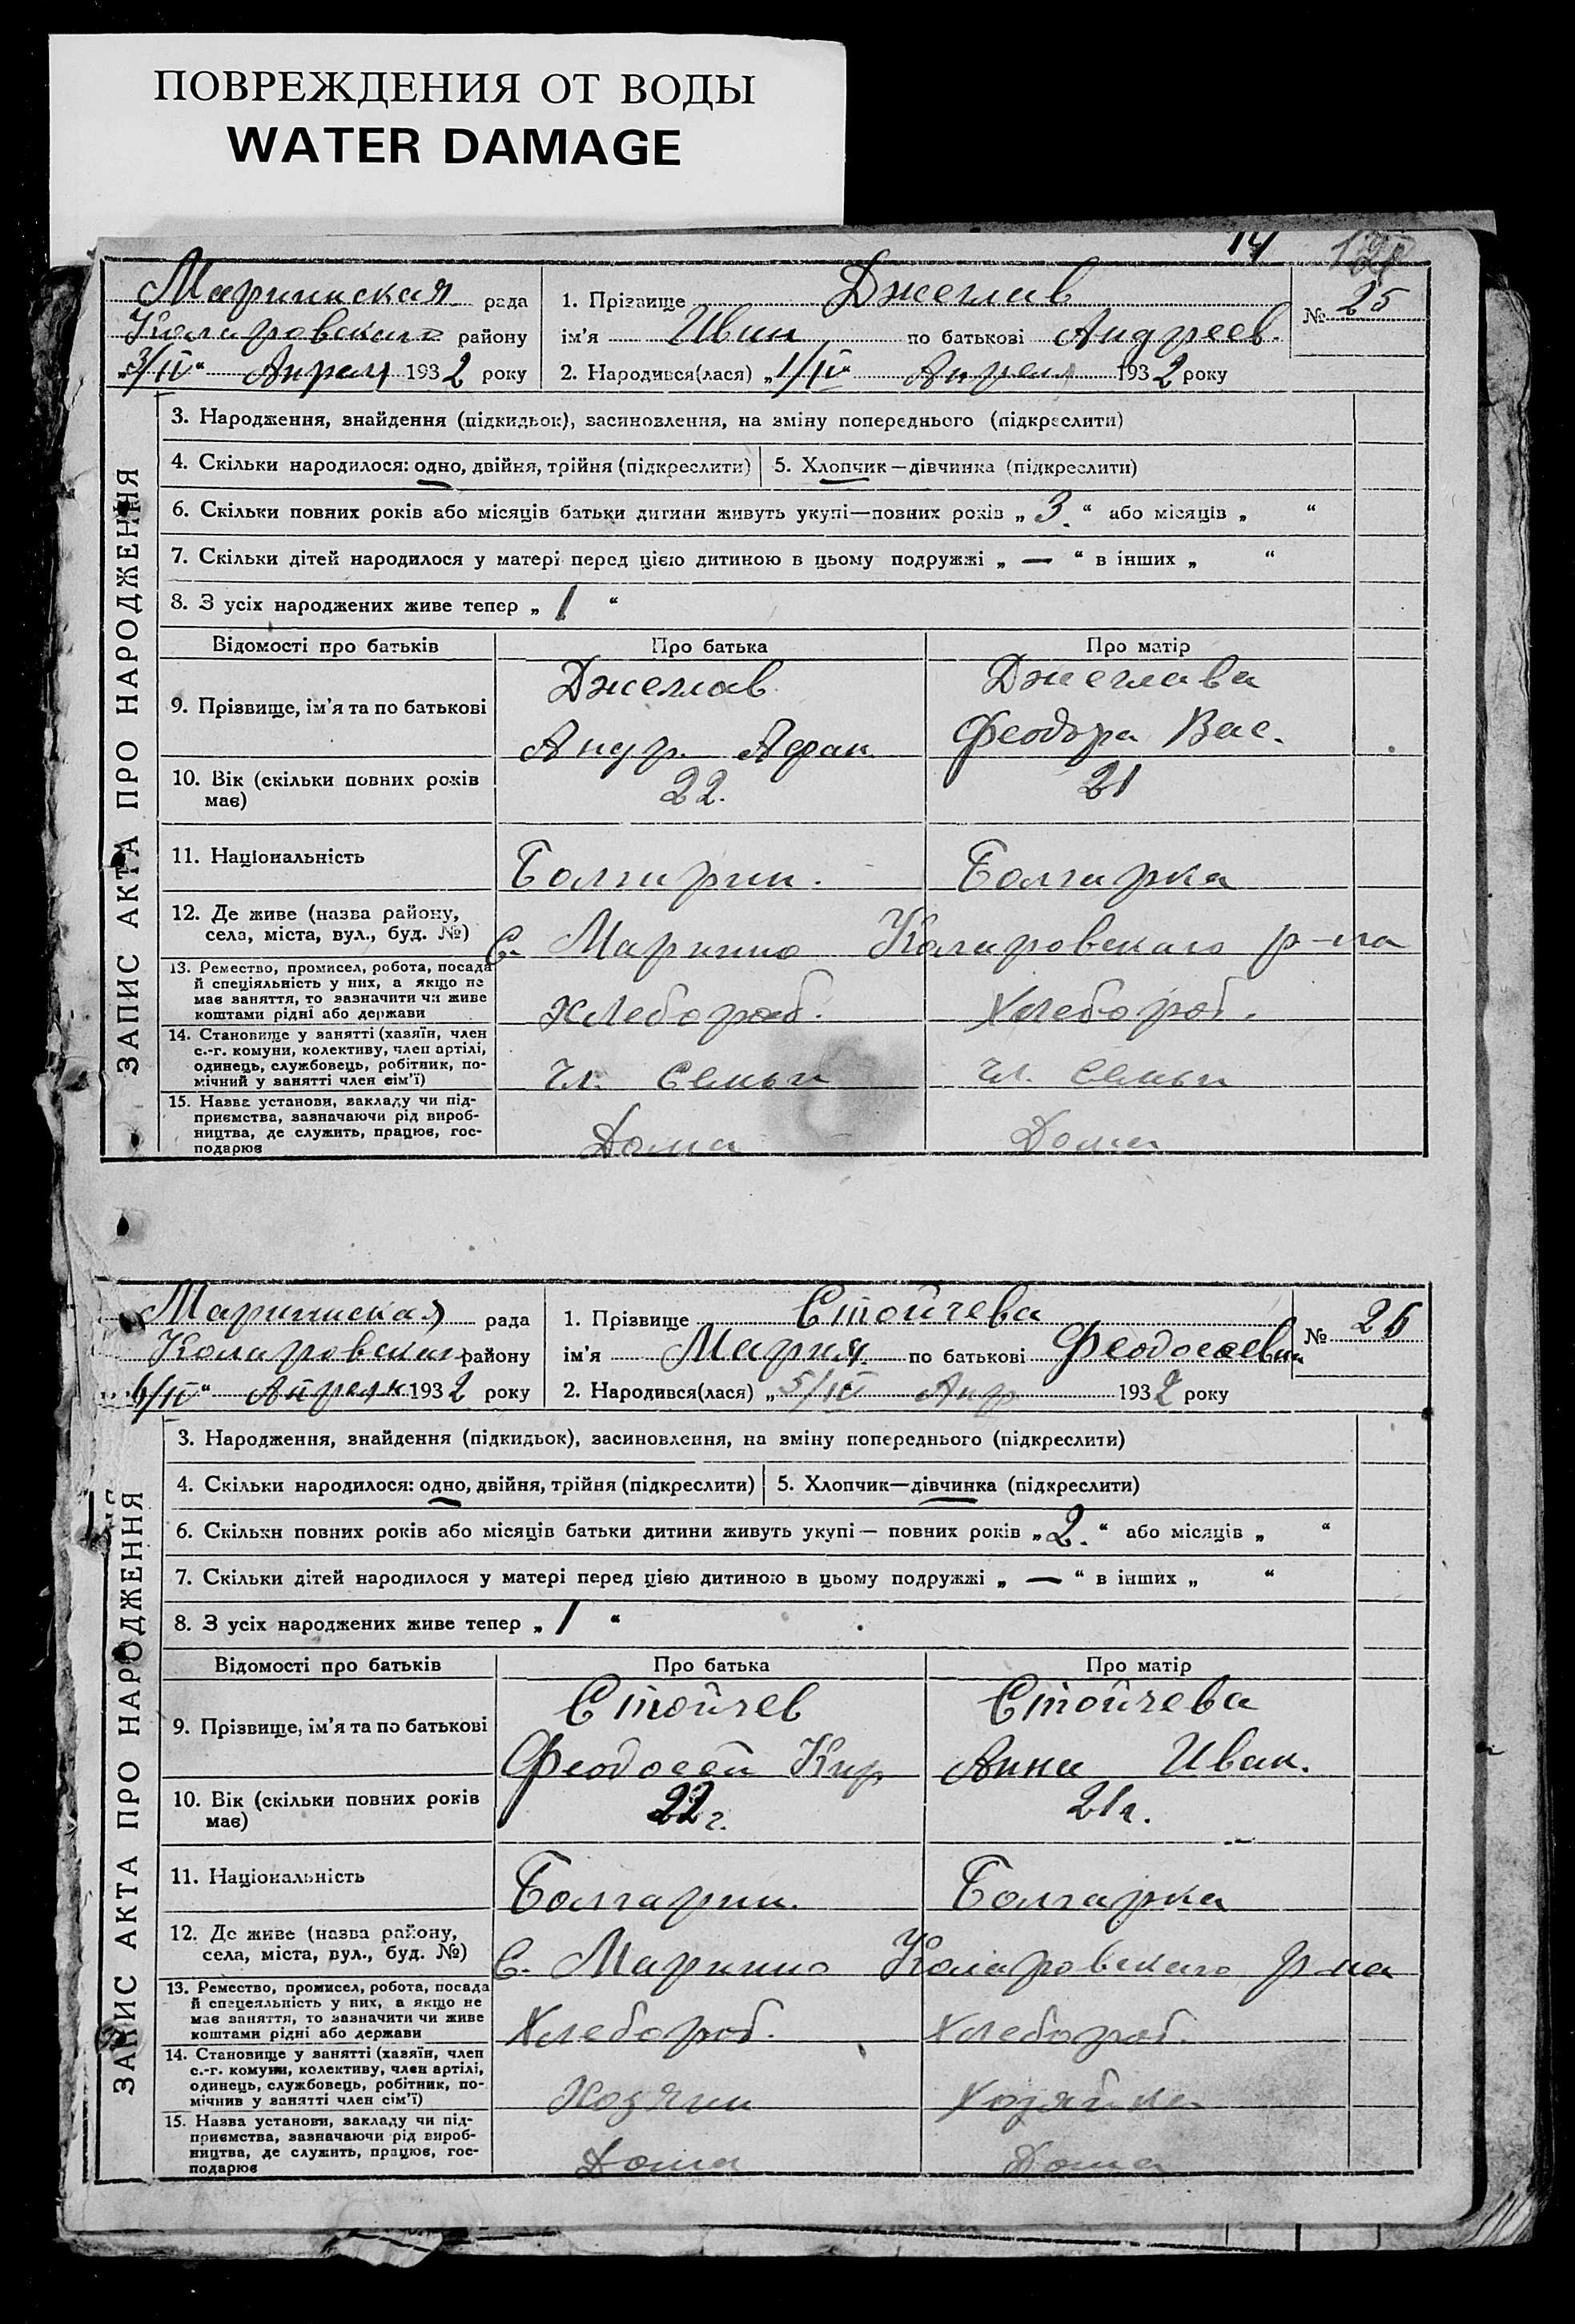 ПОВРЕЖДЕНИЯ ОТ ВОДЫ
WATER DAMAGE
14
Мариинская рада
Коларовского району
„3/IV“ Апреля 1932 року
1. Прізвище Джелав
ім'я Иван по батькові Андреев.
2. Народився(лася) „1/IV“ Апреля 1932 року
№ 25
ЗАПИС АКТА ПРО НАРОДЖЕННЯ
3. Народження, знайдення (підкидьок), засиновлення, на зміну попереднього (підкреслити)
4. Скільки народилося: одно, двійня, трійня (підкреслити) 5. Хлопчик—дівчинка (підкреслити)
6. Скільки повних років або місяців батьки дитини живуть укупі—повних років „3.“ або місяців „ “
7. Скільки дітей народилося у матері перед цією дитиною в цьому подружжі „—“ в інших „ “
8. З усіх народжених живе тепер „1“
Відомості про батьків Про батька Про матір
9. Прізвище, ім'я та по батькові
Джелав Джелава
Андр. Афан Феодора Вас.
10. Вік (скільки повних років
має)
22. 21
11. Національність
Болгарин. Болгарка
12. Де живе (назва району,
села, міста, вул., буд. №)
С. Марино Коларовского р-на
13. Ремество, промисел, робота, посада
й спеціяльність у них, а якщо не
має заняття, то зазначити чи живе
коштами рідні або держави
Хлебороб. Хлебороб.
14. Становище у занятті (хазяїн, член
с.-г. комуни, колективу, член артілі,
одинець, службовець, робітник, по-
мічний у занятті член сім'ї)
Чл. Семьи Чл. Семьи
15. Назва установи, закладу чи під-
приємства, зазначаючи рід вироб-
ництва, де служить, працює, гос-
подарює
Дома Дома
Мариинская рада
Коларовского району
6/IV“ Апреля 1932 року
1. Прізвище Стойчева
ім'я Мария по батькові Феодосеевна
2. Народився(лася) „5/IV Апр 1932 року
№ 26
ЗАПИС АКТА ПРО НАРОДЖЕННЯ
3. Народження, знайдення (підкидьок), засиновлення, на зміну попереднього (підкреслити)
4. Скільки народилося: одно, двійня, трійня (підкреслити) 5. Хлопчик—дівчинка (підкреслити)
6. Скільки повних років або місяців батьки дитини живуть укупі— повних років „2.“ або місяців „ “
7. Скільки дітей народилося у матері перед цією дитиною в цьому подружжі „—“ в інших „ “
8. З усіх народжених живе тепер „1“
Відомості про батьків Про батька Про матір
9. Прізвище, ім'я та по батькові
Стойчев Стойчева
Феодосей Кир Анна Иван.
10. Вік (скільки повних років
має)
22 г. 21 г.
11. Національність
Болгарин. Болгарка
12. Де живе (назва району,
села, міста, вул., буд. №)
С. Марино Коларовского р-на
13. Ремество, промисел, робота, посада
й спецеяльність у них, а якщо не
має заняття, то зазначити чи живе
коштами рідні або держави
Хлебороб. Хлебороб.
14. Становище у занятті (хазяїн, член
с.-г. комуни, колективу, член артілі,
одинець, службовець, робітник, по-
мічнив у занятті член сім'ї)
Хозяин Хозяйка
15. Назва установи, закладу чи під-
приємства, зазначаючи рід вироб-
ництва, де служить, працює, гос-
подарює
Дома Дома